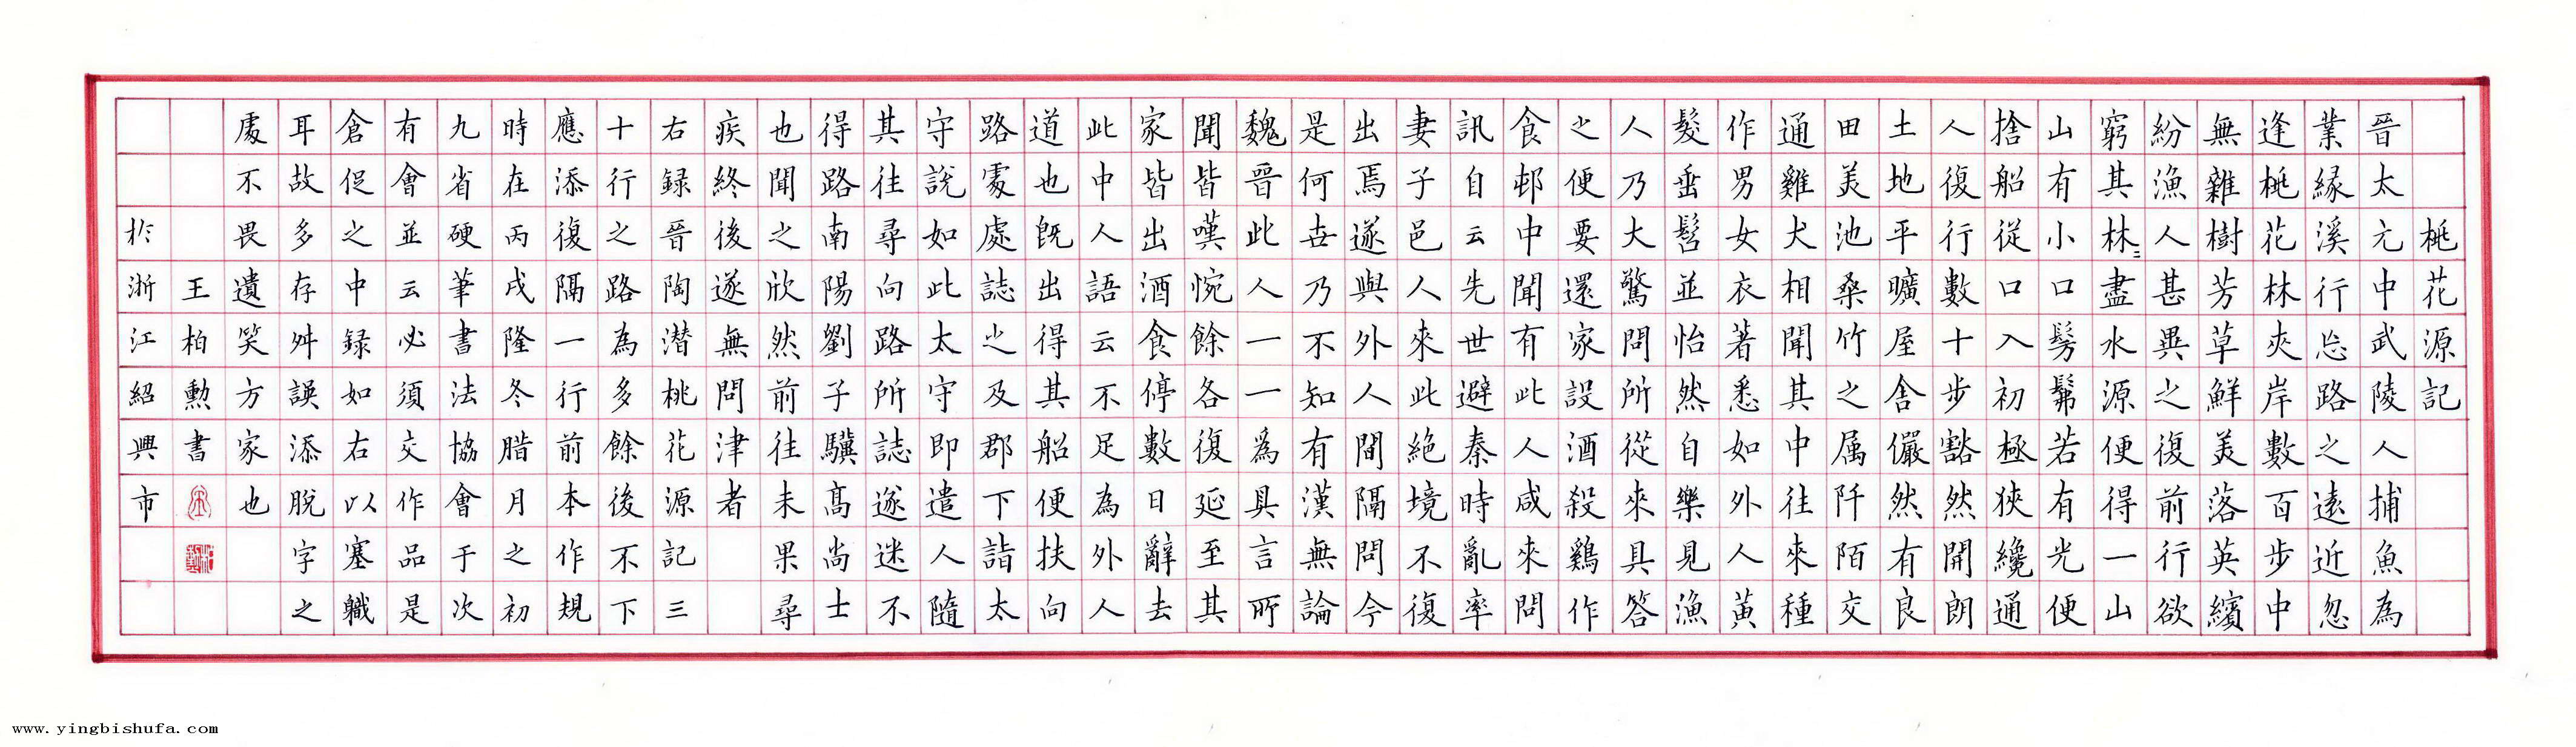 桃花源記
晉太元中武陵人捕魚為
業緣溪行忘路之遠近忽
逢桃花林夾岸數百步中
無雜樹芳草鮮美落英繽
紛漁人甚異之復前行欲
窮其林〻盡水源便得一山
山有小口髣髴若有光便
捨船從口入初極狹纔通
人復行數十步豁然開朗
土地平曠屋舍儼然有良
田美池桑竹之属阡陌交
通雞犬相聞其中往來種
作男女衣著悉如外人黃
髮垂髫並怡然自樂見漁
人乃大驚問所從來具答
之便要還家設酒殺鷄作
食邨中聞有此人咸來問
訊自云先世避秦時亂率
妻子邑人來此絕境不復
出焉遂與外人間隔問今
是何世乃不知有漢無論
魏晉此人一一爲具言所
聞皆嘆惋餘各復延至其
家皆出酒食停數日辭去
此中人語云不足為外人
道也既出得其船便扶向
路處處誌之及郡下詣太
守說如此太守即遣人隨
其往尋向路所誌遂迷不
得路南陽劉子驥高尚士
也聞之欣然前往未果尋
疾終後遂無問津者
右録晉陶潛桃花源記三
十行之路為多餘後不下
應添復隔一行前本作規
時在丙戌隆冬腊月之初
九省硬筆書法協會于次
有會並云必須交作品是
倉促之中録如右以塞職
耳故多存舛誤添脫字之
處不畏遺笑方家也
王柏勳書
於浙江紹興市
www.yingbishufa.com